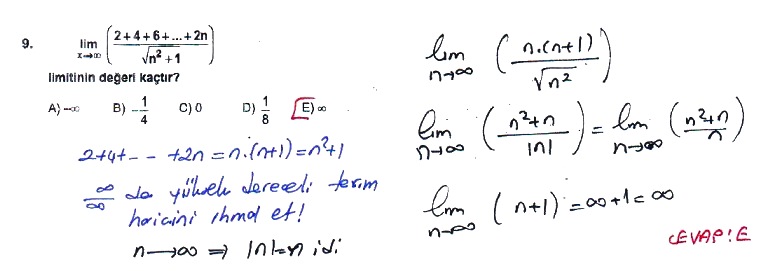 9. lim x→∞ (2+4+6+...+2n / √n²+1)
limitinin değeri kaçtır?
A) -∞ B) -1/4 C) 0 D) 1/8 E) ∞
2+4+-- +2n = n.(n+1) = n²+1
∞/∞ da yüksek dereceli terim
haricini ihmal et!
n→∞ ⇒ |n|=n idi
lim n→∞ (n.(n+1) / √n²)
lim n→∞ (n²+n / |n|) = lim n→∞ (n²+n / n)
lim n→∞ (n+1) = ∞+1 = ∞
CEVAP!E